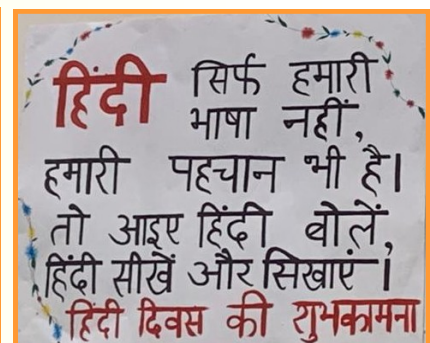 हिंदी सिर्फ हमारी
भाषा नहीं,
हमारी पहचान भी है।
तो आइए हिंदी बोलें,
हिंदी सीखें और सिखाएं।
हिंदी दिवस की शुभकामना